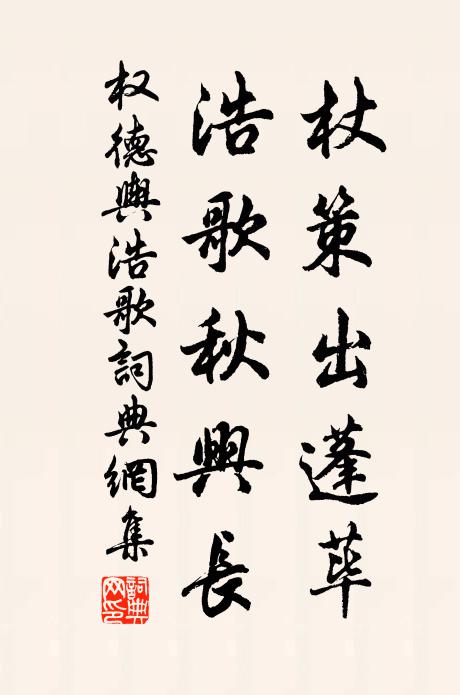 杖策出蓬荜
浩歌秋興長
权德輿浩歌詞典網集
詞典網印